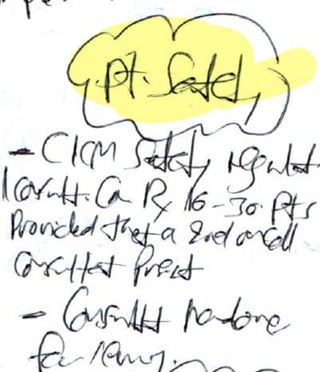 Pt. Safety
- CICM Safety regulat
1 Consult. Can Rx 16-30 Pts
Provided that a 2nd oncall
Consultant Present
- Consultant handover
for